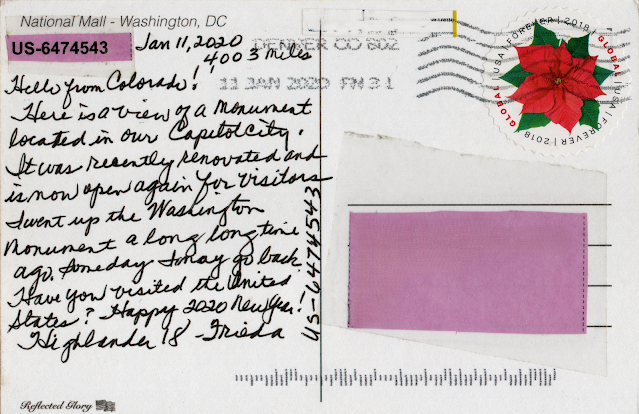 National Mall - Washington, DC
US-6474543
Jan 11, 2020
4003 miles
Hello from Colorado!
Here is a view of a Monument
located in our Capitol city.
It was recently renovated and
is now open again for visitors
I went up the Washington
Monument a long long time
ago. Someday I may go back.
Have you visited the United
States? Happy 2020 New Year!
Highlander 18 -Frieda
US-6474543
Reflected Glory
DENVER CO 802
11 JAN 2020 PM 3 L
GLOBAL USA / FOREVER / 2018
GLOBAL USA / FOREVER / 2018